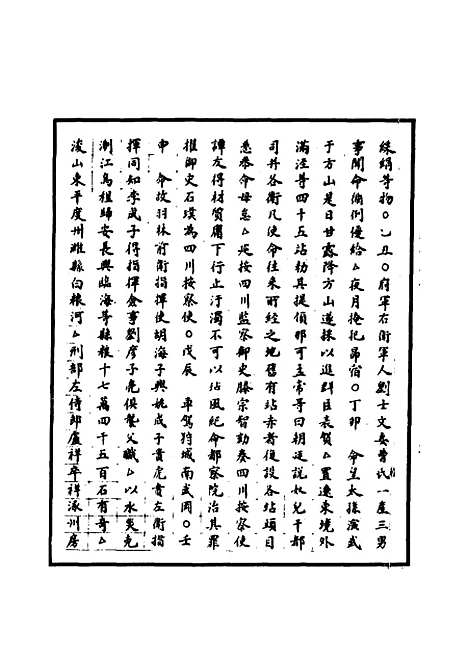 綵絹等物○乙丑○府軍右衛軍人劉士文妻曹氏一產三男
事聞命循例優給△夜月掩犯昴宿○丁卯　命皇太孫演武
于方山是日甘露降方山遂採以進群臣表賀△置遼東境外
滿涇等四十五站勅其提領那可孟常等曰朝廷說奴兒干都
司并各衛凡使命往來所經之地舊有站赤者復設各站頭目
悉恭命毋怠△廵按四川監察御史滕宗智劾奏四川按察使
譚友得材質庸下行止汙濁不可以玷風紀命都察院治其罪
擢御史石璞為四川按察使○戊辰　車駕狩城南武岡○壬
申　命故羽林前衛指揮使胡海子興姚成子貴虎賁左衛指
揮同知李成子得指揮僉事劉彥子亮俱襲父職△以水災免
浙江烏程歸安長興臨海等縣糧十七萬四千五百石有奇△
浚山東平度州濰縣白狼河△刑部左侍郎盧祥卒祥涿州房